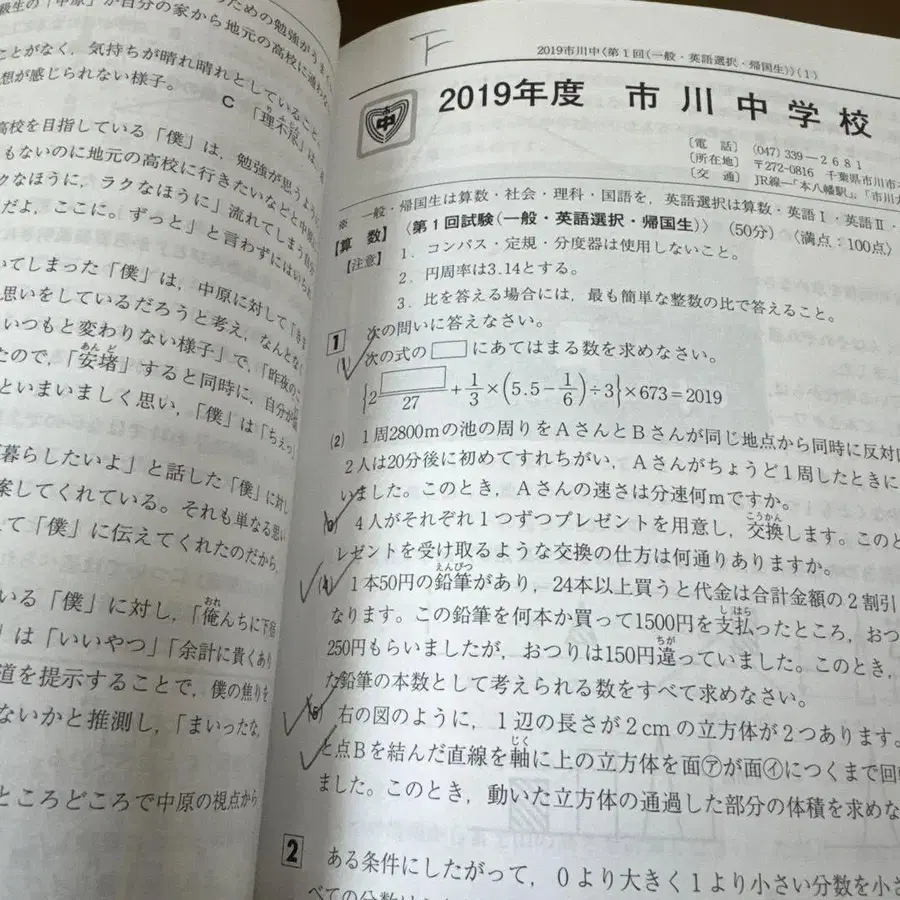 級生の「中原」が自分の家から地元の高校に通わない
ことがなく，気持ちが晴れ晴れとしていること。
想が感じられない様子。
C 「理不尽」は，
高校を目指している「僕」は，勉強が思うように
もないのに地元の高校に行きたいなどと中原に
クなほうに，ラクなほうに」流れてしまう自分
だよ，ここに。ずっと」と言わずにはいられ
いてしまった「僕」は，中原に対して「きま
思いをしているだろうと考え，なんとなく
いつもと変わりない様子」で，「昨夜のこ
たので，「安堵」すると同時に，自分が
といまいましく思い，「僕」は「ちぇっ
暮らしたいよ」と話した「僕」に対し
案してくれている。それも単なる思い
て「僕」に伝えてくれたのだから，
いる「僕」に対し，「俺んちに下宿
」は「いいやつ」「余計に貴くあり
道を提示することで，僕の焦りを
ないかと推測し，「まいったな，
ところどころで中原の視点から
下
2019市川中〈第1回(一般・英語選択・帰国生)〉(1)
中
2019年度 市川中学校
〔電 話〕 (047) 339－2681
〔所在地〕 〒272-0816 千葉県市川市本
〔交 通〕 JR線―「本八幡駅」，「市川大
※ 一般・帰国生は算数・社会・理科・国語を，英語選択は算数・英語Ⅰ・英語Ⅱ・
【算 数】〈第1回試験(一般・英語選択・帰国生)〉 (50分) 〈満点：100点〉
【注意】 1．コンパス・定規・分度器は使用しないこと。
2．円周率は3.14とする。
3．比を答える場合には，最も簡単な整数の比で答えること。
1 次の問いに答えなさい。
(1) 次の式の□にあてはまる数を求めなさい。
{2□/27+1/3×(5.5－1/6)÷3}×673＝2019
(2) 1周2800mの池の周りをAさんとBさんが同じ地点から同時に反対
2人は20分後に初めてすれちがい，Aさんがちょうど1周したときに
いました。このとき，Aさんの速さは分速何mですか。
(3) 4人がそれぞれ1つずつプレゼントを用意し，交換します。このと
レゼントを受け取るような交換の仕方は何通りありますか。
(4) 1本50円の鉛筆があり，24本以上買うと代金は合計金額の2割引
なります。この鉛筆を何本か買って1500円を支払ったところ，おつ
250円もらいましたが，おつりは150円違っていました。このとき，
た鉛筆の本数として考えられる数をすべて求めなさい。
(5) 右の図のように，1辺の長さが2cmの立方体が2つあります。
と点Bを結んだ直線を軸に上の立方体を面㋐が面㋑につくまで回
ました。このとき，動いた立方体の通過した部分の体積を求めな
2 ある条件にしたがって，0より大きく1より小さい分数を小さ